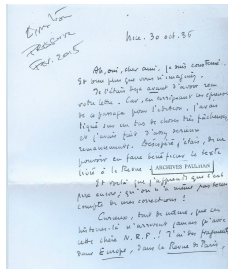 Nice. 30 oct. 35
Ah, oui, cher ami, je suis consterné.
Et vous plus que vous n'imaginez.
Je l'étais déjà avant d'avoir reçu
votre lettre. Car, en corrigeant les épreuves
de ce passage pour l'édition, j'avais
pigné sur un tas de choses très fâcheuses,
et j'avais fait d'assez sérieux
remaniements. Désespéré, j'étais, de ne
pouvoir en faire bénéficier le texte
livré à la Revue
ARCHIVES PAULHAN
Et voilà que j'apprends que c'est
pire encore ; qu'on n'a même pas tenu
compte de mes corrections !
Curieux, tout de même, que ces
histoires-là n'arrivent jamais qu'avec
cette chère N.R.F. ! J'ai des fragments
dans Europe, dans la Revue de Paris,